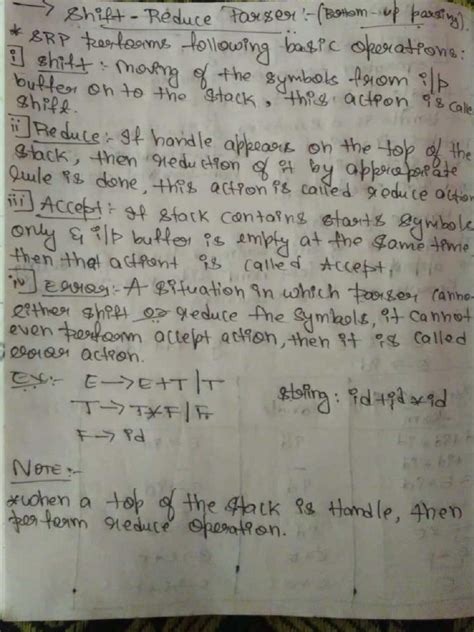 → Shift-Reduce Parser :- (Bottom-up parsing).
* SRP performs following basic operations:
i] Shift :- Moving of the symbols from i/p
buffer on to the stack, this action is calle
shift.
ii] Reduce :- If handle appears on the top of the
stack, then reduction of it by appropriate
rule is done, this action is called reduce action
iii] Accept :- If stack contains starts symbols
only & i/p buffer is empty at the same time
then that actiont is called Accept.
iv] Error :- A situation in which parser canno
either shift or reduce the symbols, it cannot
even perform accept action, then it is called
error action.
Ex:- E → E+T | T
T → T*F | F.
string: id+id*id
F → id
NOTE :-
*when a top of the stack is Handle, then
perform reduce operation.